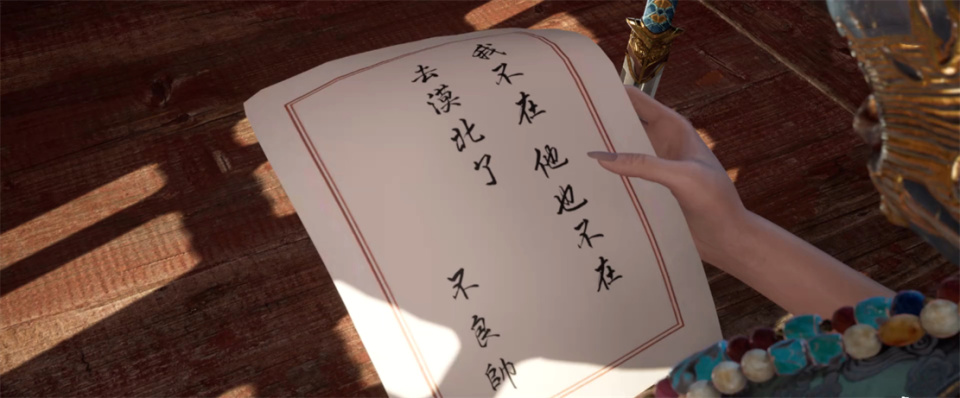 我不在 他也不在
去漠北了
不良帥